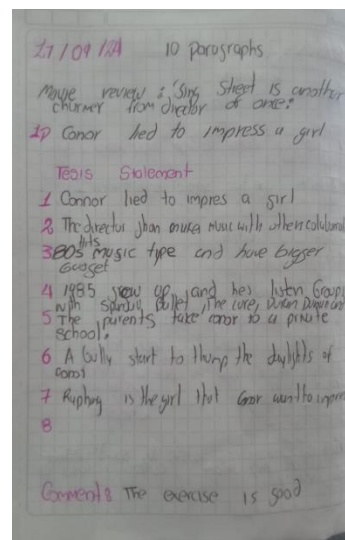 17/09/24 10 Paragraphs
Movie review: "Sing Street is another
charmer from director of once:
1D Conor lied to impress a girl
Tesis Statement
1 Connor lied to impres a girl
2 The director jhon make music with other
3 80s hits music type and have bigger
budget
4 1985 grow up, and he's listen Groups
with spandau ballet, The cure, Duran Duran and
5 The parents take conor to a private
school.
6 A bully start to thump the daylights of
conor
7 Raphina is the girl that Conor want to impres
8
Comments The exercise is good